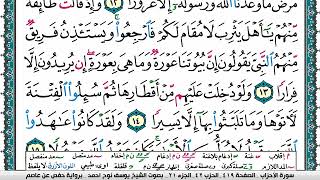 مَّرَضٌ مَّا وَعَدَنَا ٱللَّهُ وَرَسُولُهُۥٓ إِلَّا غُرُورًا ١٢ وَإِذْ قَالَت طَّآئِفَةٌ
مِّنْهُمْ يَٰٓأَهْلَ يَثْرِبَ لَا مُقَامَ لَكُمْ فَٱرْجِعُوا۟ ۚ وَيَسْتَـْٔذِنُ فَرِيقٌ
مِّنْهُمُ ٱلنَّبِىَّ يَقُولُونَ إِنَّ بُيُوتَنَا عَوْرَةٌ وَمَا هِىَ بِعَوْرَةٍ ۖ إِن يُرِيدُونَ إِلَّا
فِرَارًا ١٣ وَلَوْ دُخِلَتْ عَلَيْهِم مِّنْ أَقْطَارِهَا ثُمَّ سُئِلُوا۟ ٱلْفِتْنَةَ
لَءَاتَوْهَا وَمَا تَلَبَّثُوا۟ بِهَآ إِلَّا يَسِيرًا ١٤ وَلَقَدْ كَانُوا۟ عَٰهَدُوا۟
سورة الأحزاب - الصفحة ٤١٩ - الحزب ٤٢ - الجزء ٢١ - بصوت الشيخ يوسف نوح أحمد - برواية حفص عن عاصم